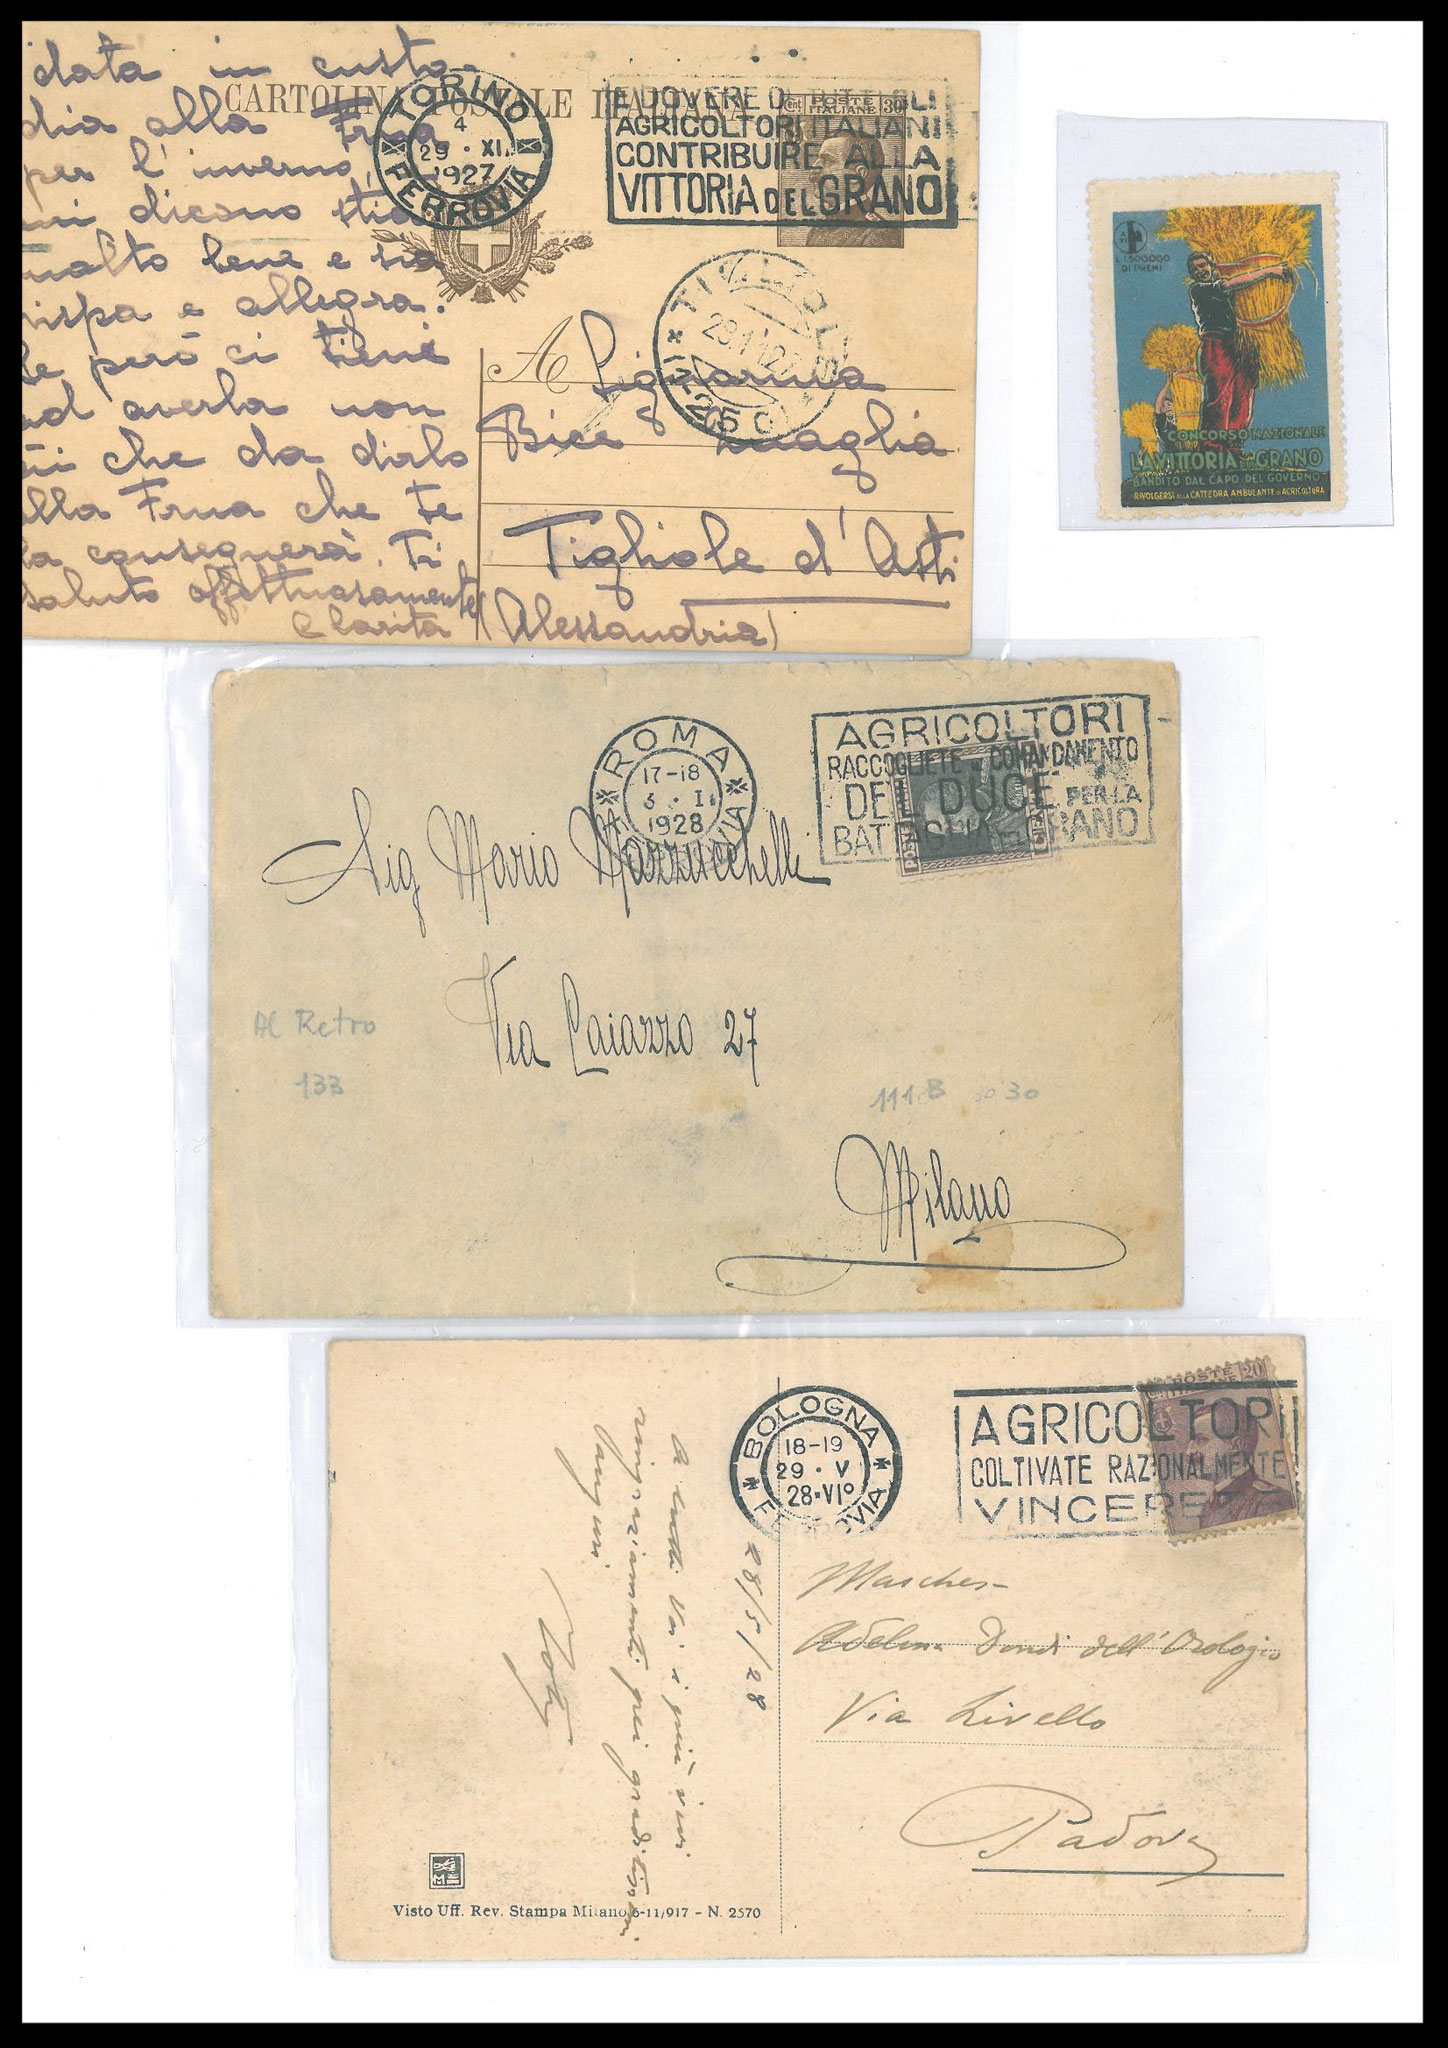 data in custo-
dia alla Frua
per l'inverno,
mi dicono stia
molto bene e sia
vispa e allegra.
però ci tiene
ad averla non
che da dirlo
alla Frua che te
la conseguerà. Ti
saluto affettuosamente
Clarita
CARTOLINA POSTALE ITALIANA
TORINO
4
29 · XI.
1927
FERROVIA
È DOVERE DI TUTTI GLI
AGRICOLTORI ITALIANI
CONTRIBUIRE ALLA
VITTORIA DEL GRANO
Cent. POSTE ITALIANE 30
TIGLIOLE
28.11.27
A Signorina
Bice Quaglia
Tigliole d'Asti
(Alessandria)
L. 1.500.000
DI PREMI
CONCORSO NAZIONALE
LA VITTORIA DEL GRANO
BANDITO DAL CAPO DEL GOVERNO
RIVOLGERSI ALLA CATTEDRA AMBULANTE DI AGRICOLTURA
ROMA
17-18
3 · I
1928
FERROVIA
AGRICOLTORI
RACCOGLIETE IL COMANDAMENTO
DEL DUCE PER LA
BATTAGLIA DEL GRANO
Sig Mario Mazzucchelli
Via Caiazzo 27
Milano
Al Retro
133
111 B 30
BOLOGNA
18-19
29 · V
28·VIº
FERROVIA
AGRICOLTORI
COLTIVATE RAZIONALMENTE
VINCERETE
POSTE ITALIANE 20
28/5/28
A tutti Voi i più vivi
ringraziamenti pei graditissimi
auguri
Marchesa
Adelina Dondi dell'Orologio
Via Livello
Padova
M E
Visto Uff. Rev. Stampa Milano 6-11/917 - N. 2570